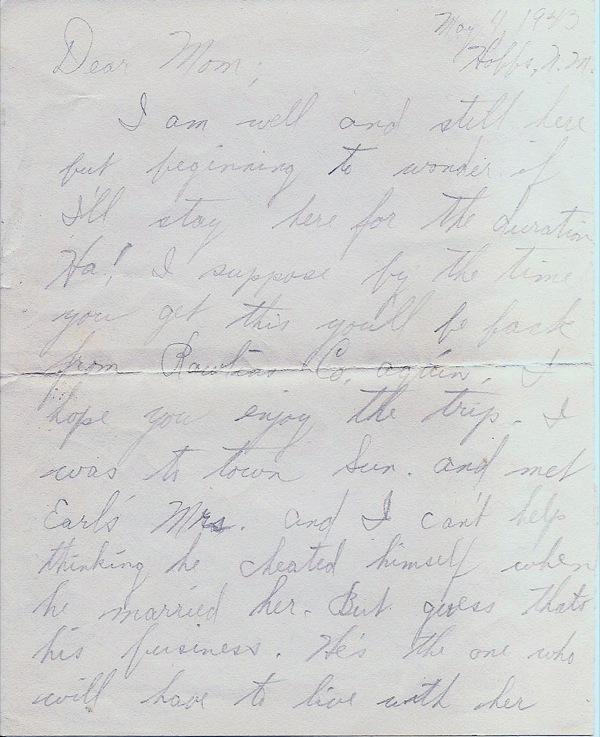 May 4, 1943
Hobbs, N.M.
Dear Mom;
I am well and still here
but beginning to wonder if
I'll stay here for the duration
Ha! I suppose by the time
you get this you'll be back
from Rawlins Co. again. I
hope you enjoy the trip. I
was to town Sun. and met
Earl's Mrs. and I can't help
thinking he cheated himself when
he married her. But guess thats
his business. He's the one who
will have to live with her